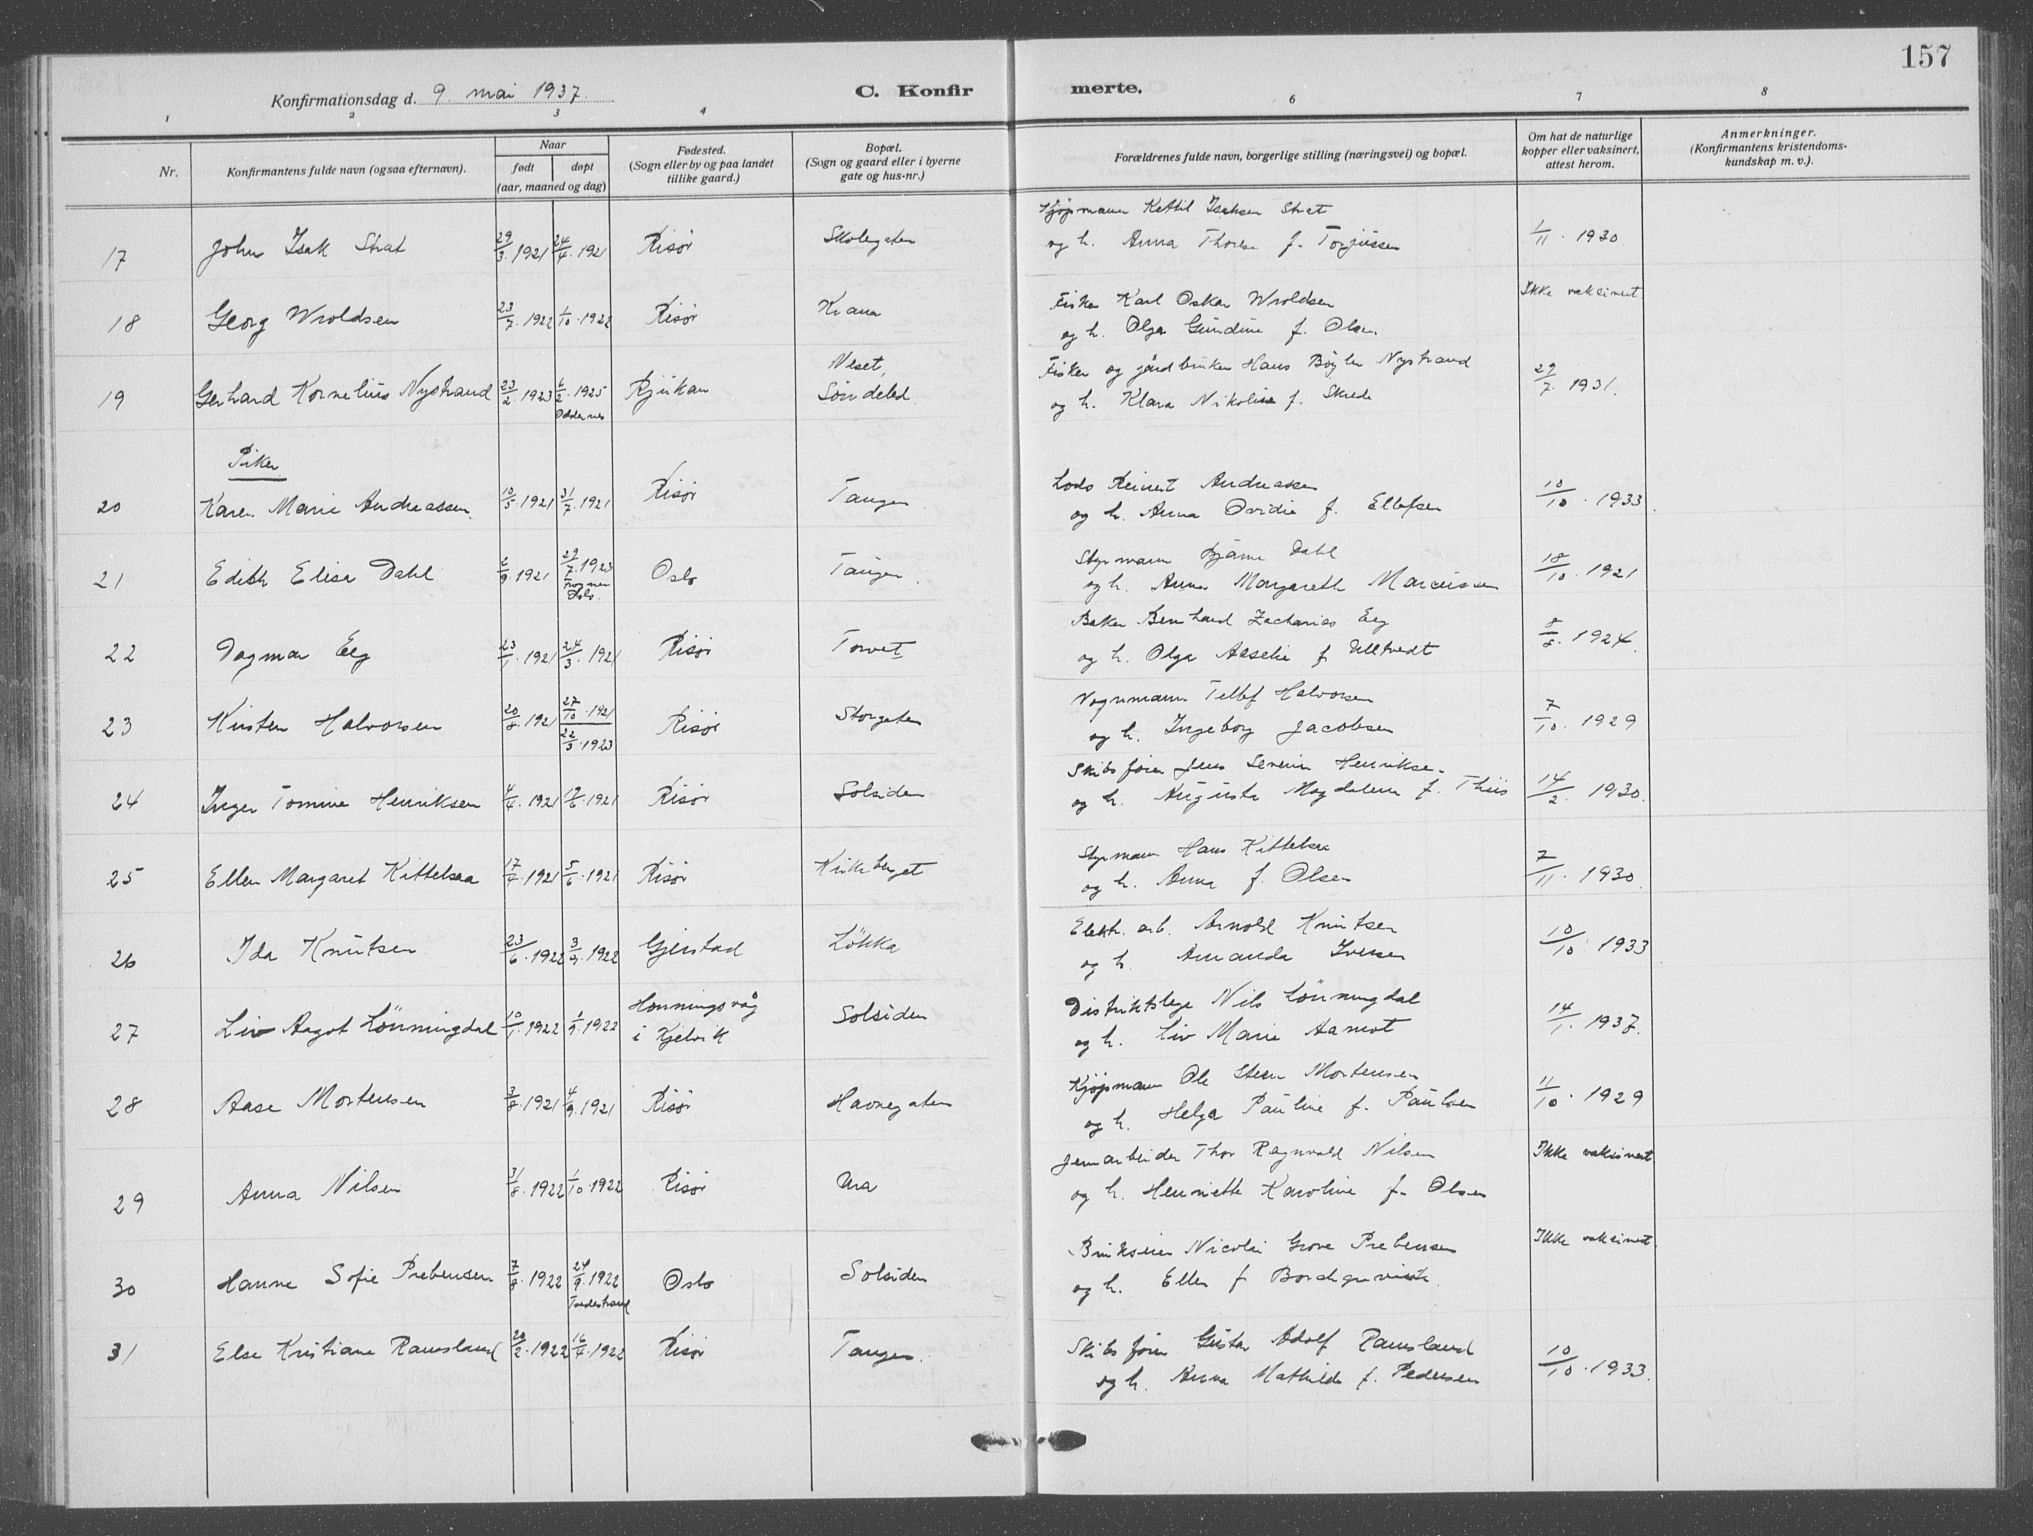 157
Konfirmationsdag d. 9. mai 1937.
C. Konfir
merte.
1 2 3 4 6 7 8
Nr.
Konfirmantens fulde navn (ogsaa efternavn).
Naar
født døpt
(aar, maaned og dag)
Fødested.
(Sogn eller by og paa landet
tillike gaard.)
Bopæl.
(Sogn og gaard eller i byerne
gate og hus-nr.)
Forældrenes fulde navn, borgerlige stilling (næringsvei) og bopæl.
Om hat de naturlige
kopper eller vaksinert,
attest herom.
Anmerkninger.
(Konfirmantens kristendoms-
kundskap m. v.).
Kjøpmann Kettil Isaksen Strat
17 John Isak Strat 29/3. 1921 24/4. 1921 Risør Skolegaten
og h. Anna Thorine f. Torjussen 1/11. 1930
Fisker Karl Oskar Wroldsen Ikke vaksinert.
18 Georg Wroldsen 23/7. 1922 1/10. 1922 Risør Krana
og h. Olga Gundine f. Olsen
Fisker og gårdbruker Hans Bøgler Nystrand
19 Gerhard Kornelius Nystrand 23/2. 1923 6/2. 1925 Rjukan Vleset,
Oddernes Søndeled
og h. Klara Nikoline f. Skrede 29/7. 1931.
Piker
Lods Reinert Andreassen
20 Karen Marie Andreassen 10/5. 1921 31/7. 1921 Risør Tangen
og h. Anna Ovidie f. Ellefsen 10/10. 1933.
Styrmann Bjarne Dahl
21 Edith Elisa Dahl 2/9. 1921 29/7. 1923 Oslo Tangen.
Frogner
Oslo.
og h. Anna Margareth Marcussen 18/10. 1921
Baker Bernhard Zacharias Eeg
22 Dagmar Eeg 23/1. 1921 24/3. 1921 Risør Torvet
og h. Olga Asselie f. Ulltvedt 8/8. 1924.
Vognmann Tellef Halvorsen
23 Kirsten Halvorsen 20/8. 1921 27/10. 1921 Risør Storgaten
22/5. 1923
og h. Ingeborg Jacobsen 7/10. 1929
Skibsfører Jens Severin Henriksen
24 Inger Tomine Henriksen 4/4. 1921 12/6. 1921 Risør Solsiden
og h. Augusta Magdalene f. Thiis 14/2. 1930.
Styrmann Hans Kittelsaa
25 Ellen Margaret Kittelsaa 17/4. 1921 5/6. 1921 Risør Kirkeberget
og h. Anna f. Olsen 7/11. 1930.
Elektr. arb. Arnold Knutsen
26 Ida Knutsen 23/6. 1922 3/9. 1922 Gjerstad Løkka
og h. Amanda Iversen 10/10. 1933
Distriktslege Nils Lönningdal
27 Liv Aagot Lönningdal 10/1. 1922 1/9. 1922 Honningsvåg
i Kjelvik Solsiden
og h. Liv Marie Aamot 14/1. 1937.
Kjøpmann Ole Steen Mortensen
28 Aase Mortensen 3/8. 1921 4/9. 1921 Risør Havnegaten
og h. Helga Pauline f. Paulsen 11/10. 1929
Jernarbeider Thor Ragnvald Nilsen Ikke vaksinert
29 Anna Nilsen 31/8. 1922 1/10. 1922 Risør Ura
og h. Henriette Karoline f. Olsen
Brukseier Nicolai Grove Prebensen Ikke vaksinert.
30 Hanne Sofie Prebensen 7/8. 1922 24/9. 1922 Oslo Solsiden
Tvedestrand
og h. Ellen f. Borchgrevink.
Skibsfører Gustav Adolf Ramsland
31 Else Kristiane Ramsland 20/2. 1922 16/4. 1922 Risør Tangen.
og h. Anna Mathilde f. Pedersen 10/10. 1933.